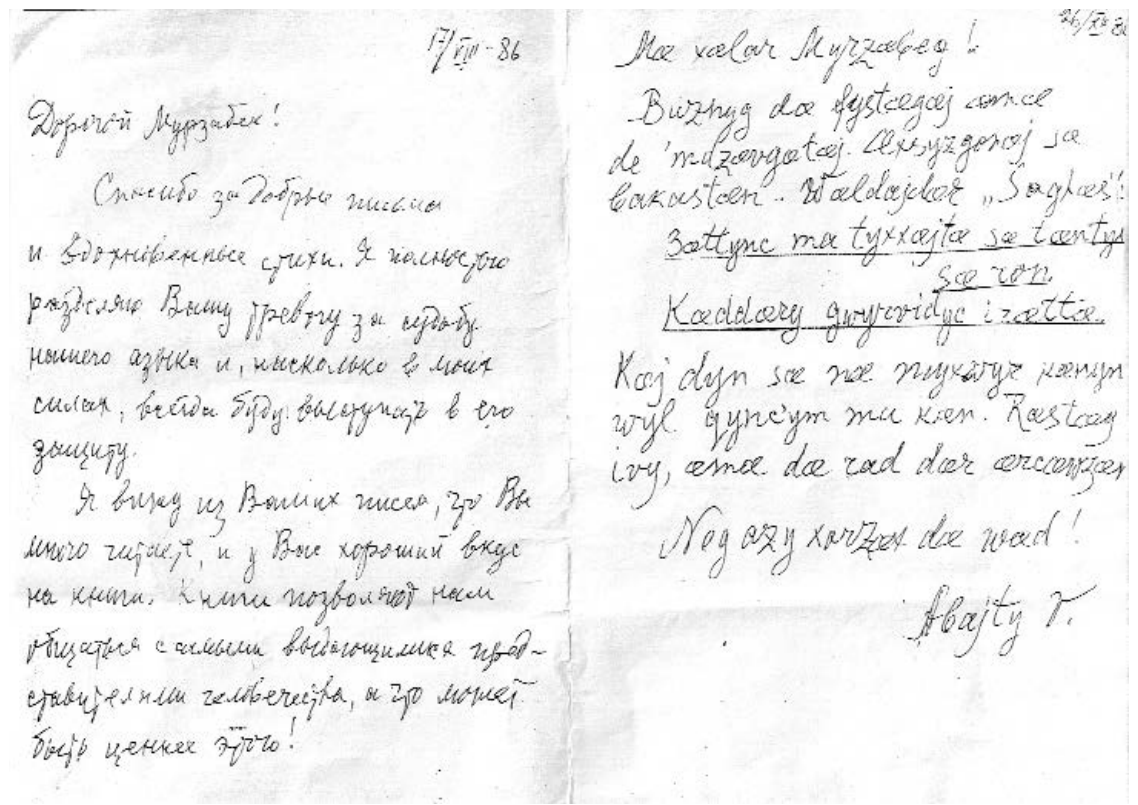 17/VIII-86
Дорогой Мурзабек!
Спасибо за добрые письма
и вдохновенные стихи. Я полностью
разделяю Вашу тревогу за судьбу
нашего языка и, насколько в моих
силах, всегда буду выступать в его
защиту.
Я вижу из Ваших писем, что Вы
много читаете, и у Вас хороший вкус
на книги. Книги позволяют нам
общаться с самыми выдающимися пред-
ставителями человечества, а что может
быть ценнее этого!
26/XII 86
Mæ xælar Myrzabeg!
Buznyg dæ fystægæj æmæ
de 'mdzævgætæj. Æxsyzgonæj sæ
bakastæn. Wældajdær „Saghæs":
Zættync ma tyxxæjttæ sæ
sæ ron
Kæddæry gwyrvidyc izættæ.
Kæj dyn sæ næ myxwyr kænync
wyl qync'ym ma kæn. Ræstæg
ivy, æmæ dæ rad dær ærcæwdzæn
Nog azy xorzæx dæ wæd!
Abajty V.